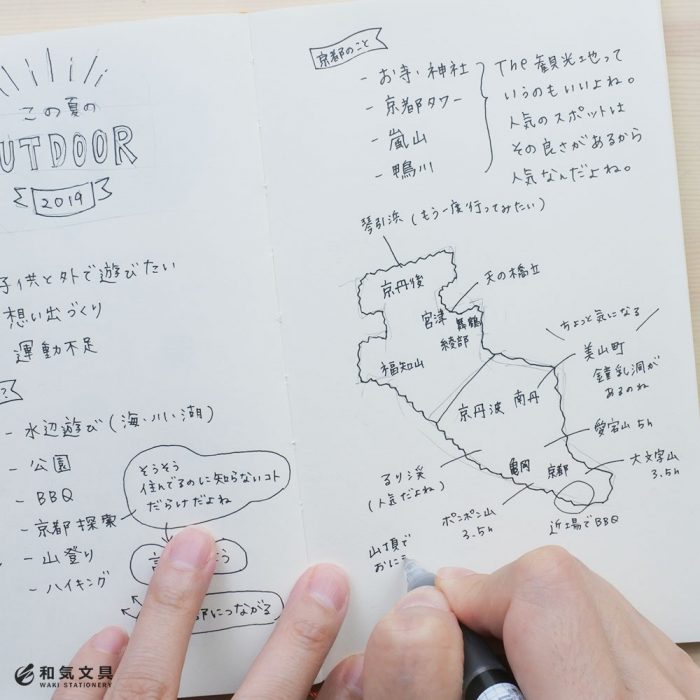 この夏の
OUTDOOR
2019
子供と外で遊びたい
想い出づくり
運動不足
- 水辺遊び(海・川・湖)
- 公園
- BBQ
- 京都探索
- 山登り
- ハイキング
そうそう
住んでるのに知らないコト
だらけだよね
につながる
京都のこと
- お寺・神社
- 京都タワー
- 嵐山
- 鴨川
The 観光地って
いうのもいいよね。
人気のスポットは
その良さがあるから
人気なんだよね。
琴引浜(もう一度行ってみたい)
京丹後
天の橋立
宮津
舞鶴
綾部
福知山
ちょっと気になる
美山町
鐘乳洞が
あるのね
京丹波
南丹
愛宕山 5h
亀岡
京都
大文字山
3.5h
るり渓
(人気だよね)
ポンポン山
3.5h
近場でBBQ
山頂で
おに
和気文具
WAKI STATIONERY